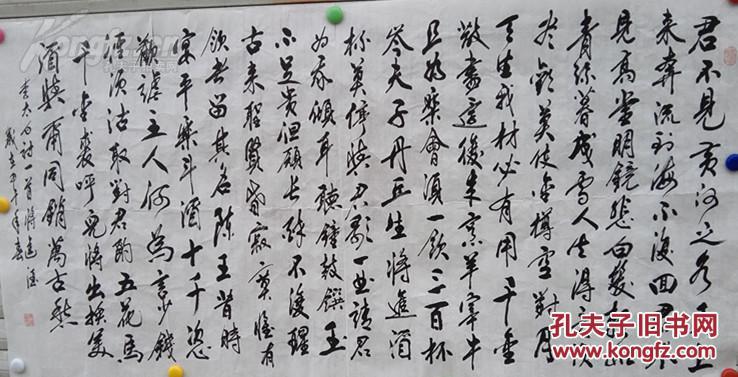 君不見黃河之水天上
來奔流到海不復回君不
見高堂明鏡悲白髮朝如
青絲暮成雪人生得意須
盡歡莫使金樽空對月
天生我材必有用千金
散盡還復來烹羊宰牛
且為樂會須一飲三百杯
岑夫子丹丘生將進酒
杯莫停與君歌一曲請君
為我傾耳聽鐘鼓饌玉
不足貴但願長醉不復醒
古來聖賢皆寂寞惟有
飲者留其名陳王昔時
宴平樂斗酒十千恣
歡謔主人何為言少錢
徑須沽取對君酌五花馬
千金裘呼兒將出換美
酒與爾同銷萬古愁
李太白詩一首將進酒
孔夫子旧书网
kongfz.com